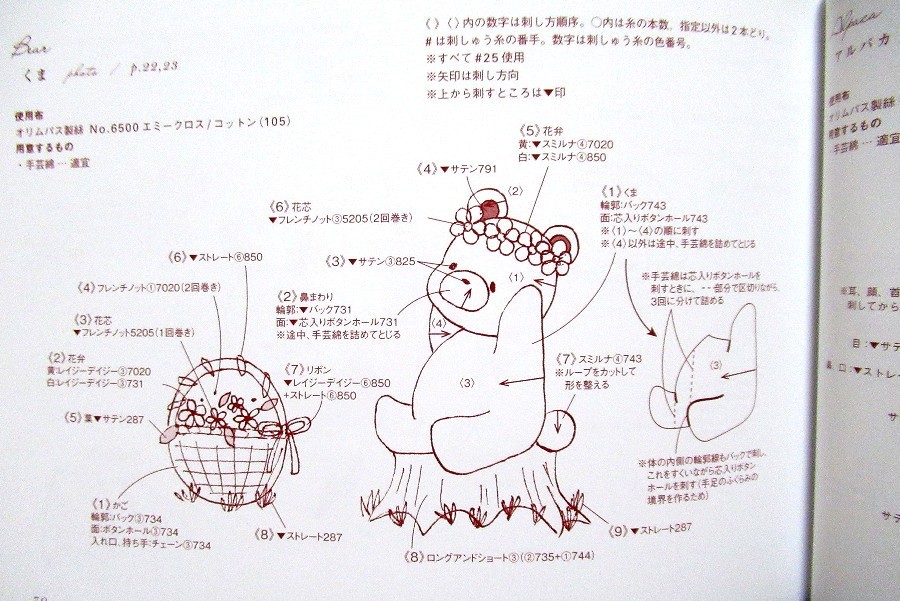 Bear
くま photo / p.22,23
使用布
オリムパス製絲 No.6500エミークロス/コットン(105)
用意するもの
・手芸綿…適宜
《》〈〉内の数字は刺し方順序。○内は糸の本数、指定以外は2本どり。
#は刺しゅう糸の番手。数字は刺しゅう糸の色番号。
※すべて#25使用
※矢印は刺し方向
※上から刺すところは▼印
《5》花弁
黄:▼スミルナ④7020
白:▼スミルナ④850
《4》▼サテン791
〈2〉
《6》花芯
▼フレンチノット③5205(2回巻き)
《3》▼サテン③825
《2》鼻まわり
輪郭:▼バック731
面:▼芯入りボタンホール731
※途中、手芸綿を詰めてとじる
《1》くま
輪郭:バック743
面:芯入りボタンホール743
※〈1〉〜〈4〉の順に刺す
※〈4〉以外は途中、手芸綿を詰めてとじる
〈1〉
〈4〉
〈3〉
※手芸綿は芯入りボタンホールを
刺すときに、--部分で区切りながら、
3回に分けて詰める
〈3〉
《7》スミルナ④743
※ループをカットして
形を整える
※体の内側の輪郭線もバックで刺し、
これをすくいながら芯入りボタン
ホールを刺す(手足のふくらみの
境界を作るため)
《6》▼ストレート⑥850
《4》フレンチノット①7020(2回巻き)
《3》花芯
▼フレンチノット5205(1回巻き)
《2》花弁
黄:レイジーデイジー③7020
白:レイジーデイジー③731
《5》葉▼サテン287
《7》リボン
▼レイジーデイジー⑥850
+ストレート⑥850
《1》かご
輪郭:バック③734
面:ボタンホール③734
入れ口、持ち手:チェーン③734
《8》▼ストレート287
《9》▼ストレート287
《8》ロングアンドショート③(②735+①744)
Alpaca
アルパカ
使用布
オリムパス製絲
用意するもの
・手芸綿…適宜
※耳、顔、首
刺してから
目:▼サテ
口:▼ストレー
サ
サテ